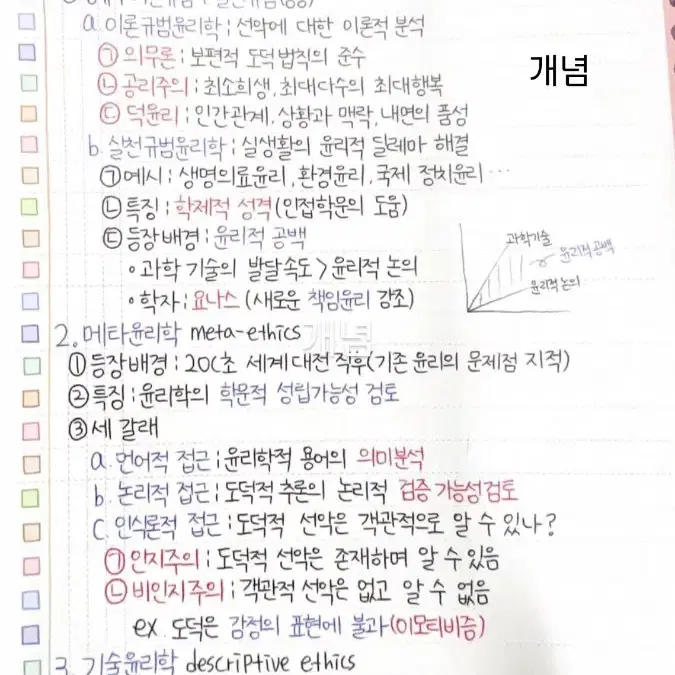 a. 이론규범윤리학 ; 선악에 대한 이론적 분석
㉠ 의무론 ; 보편적 도덕법칙의 준수
개념
㉡ 공리주의 ; 최소희생, 최대다수의 최대행복
㉢ 덕윤리 ; 인간관계, 상황과 맥락, 내면의 품성
b. 실천규범윤리학 ; 실생활의 윤리적 딜레마 해결
㉠ 예시 ; 생명의료윤리, 환경윤리, 국제 정치윤리 …
㉡ 특징 ; 학제적 성격 (인접학문의 도움)
㉢ 등장배경 ; 윤리적 공백
∘ 과학 기술의 발달속도 > 윤리적 논의
∘ 학자 ; 요나스 (새로운 책임윤리 강조)
과학기술
윤리적 공백
윤리적 논의
2. 메타윤리학 meta-ethics
개념
① 등장배경 ; 20C초 세계대전 직후 (기존 윤리의 문제점 지적)
② 특징 ; 윤리학의 학문적 성립가능성 검토
③ 세 갈래
a. 언어적 접근 ; 윤리학적 용어의 의미분석
b. 논리적 접근 ; 도덕적 추론의 논리적 검증 가능성 검토
C. 인식론적 접근 ; 도덕적 선악은 객관적으로 알 수 있나?
㉠ 인지주의 ; 도덕적 선악은 존재하며 알 수 있음
㉡ 비인지주의 ; 객관적 선악은 없고 알 수 없음
ex. 도덕은 감정의 표현에 불과 (이모티비즘)
3. 기술윤리학 descriptive ethics